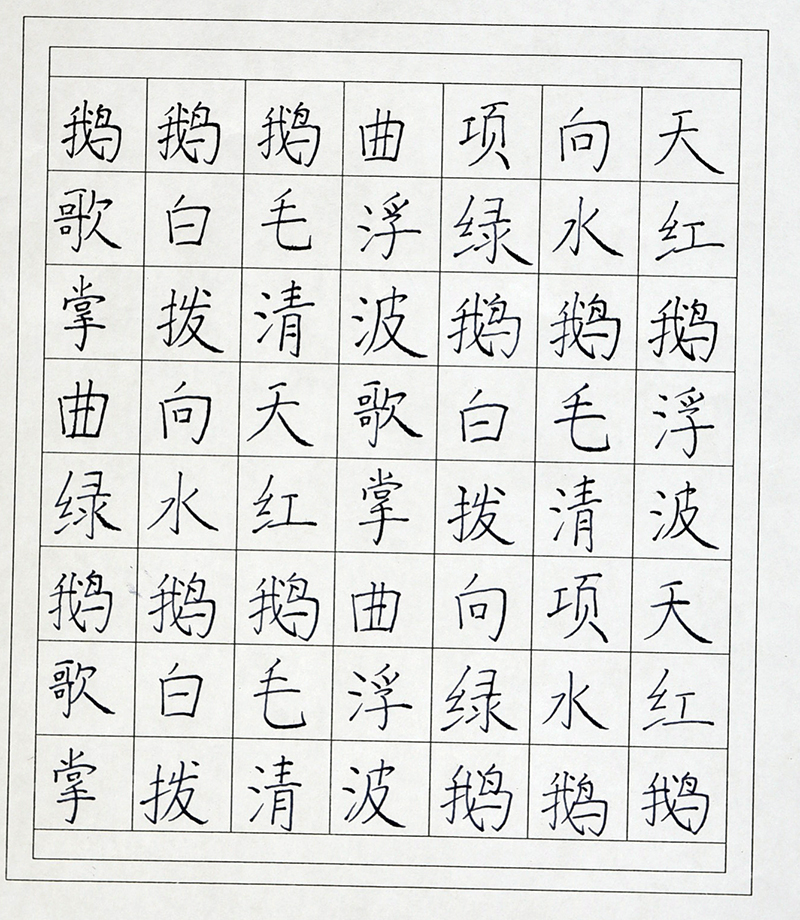 鹅鹅鹅曲项向天
歌白毛浮绿水红
掌拨清波鹅鹅鹅
曲向天歌白毛浮
绿水红掌拨清波
鹅鹅鹅曲向项天
歌白毛浮绿水红
掌拨清波鹅鹅鹅